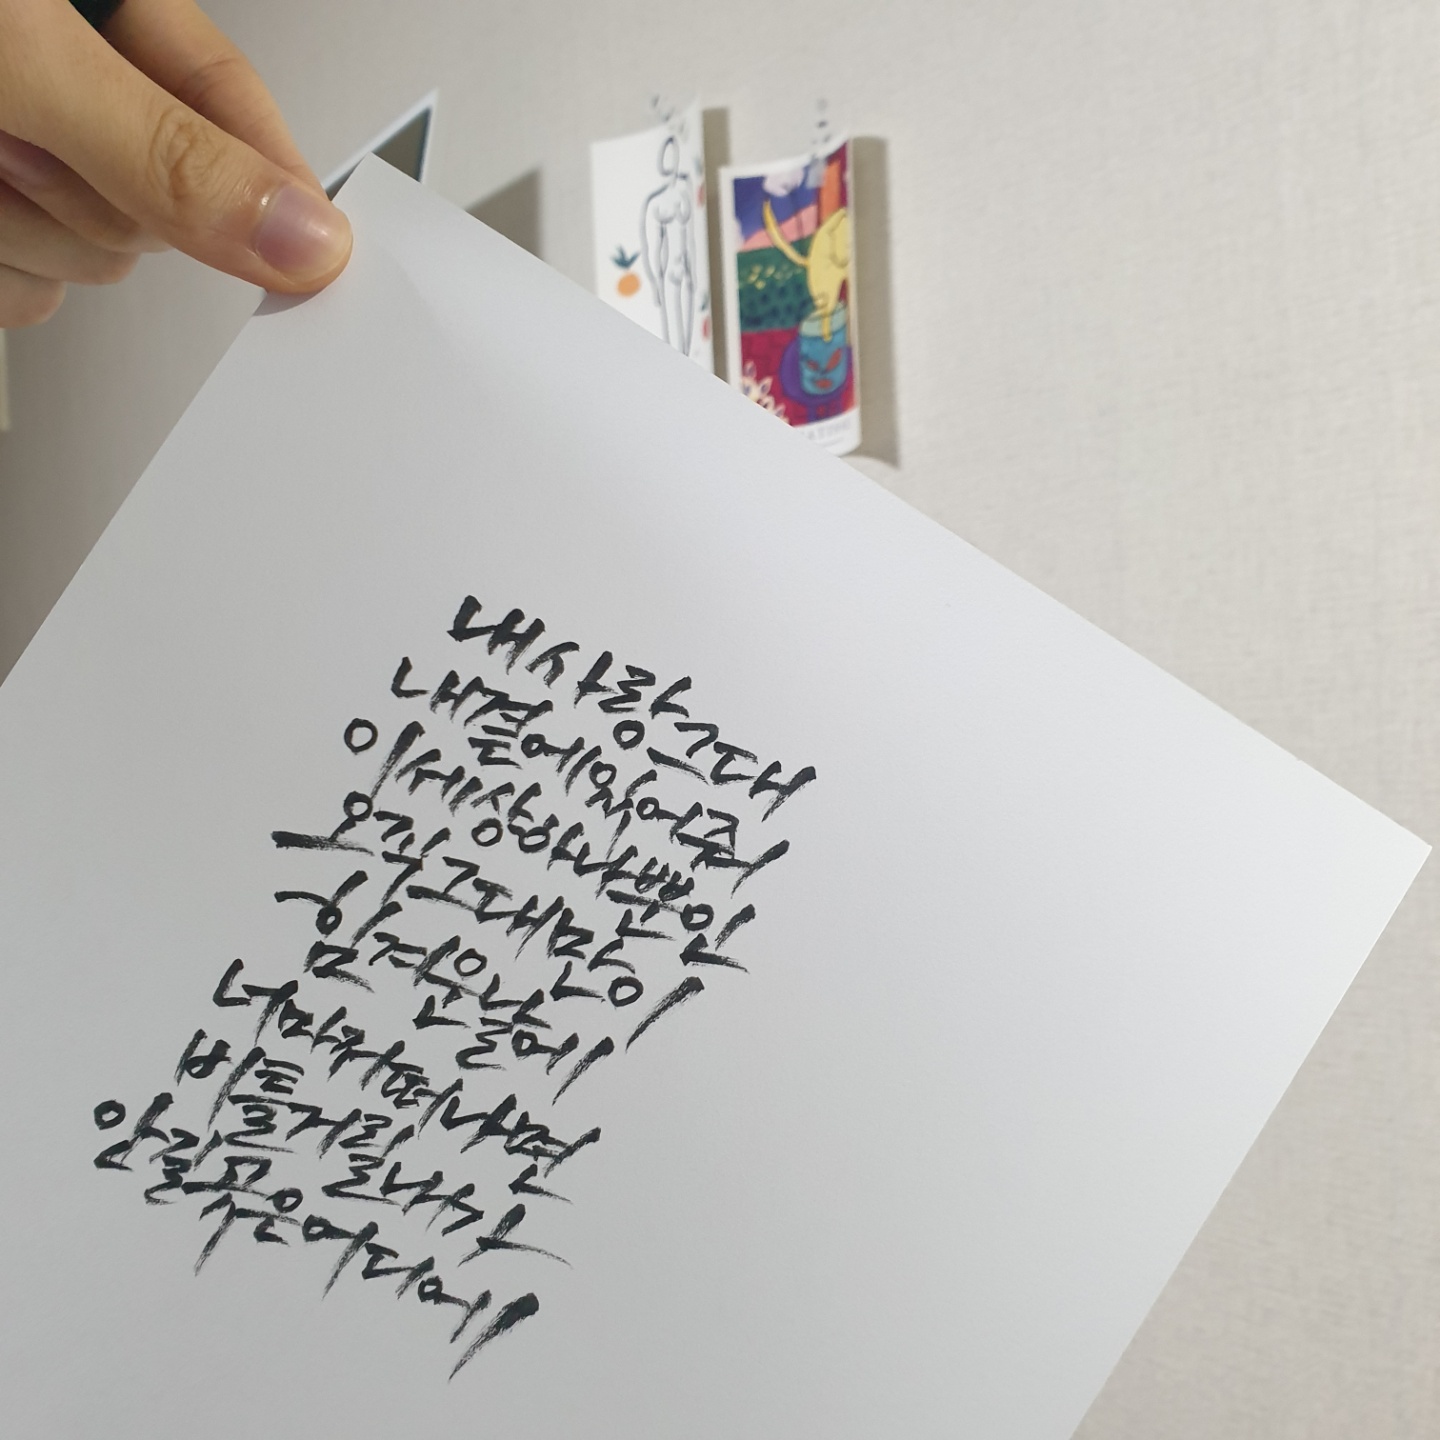 내 사랑 그대
내 곁에 있어줘
이 세상 하나뿐인
오직 그대만이
힘겨운 날에
너마저 떠나면
비틀거릴 내가
안길 곳은 어디에